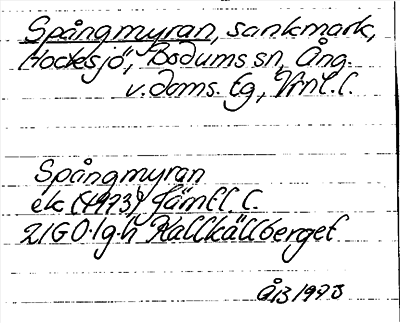 Spångmyran, sankmark,
Hocksjö, Bodums sn, Ång.
v. doms. lg, Vrnl. l.
Spångmyran
ek (1973) Jämtl. l.
21G 0-1 g-h Kallkällberget
ÅB 1973